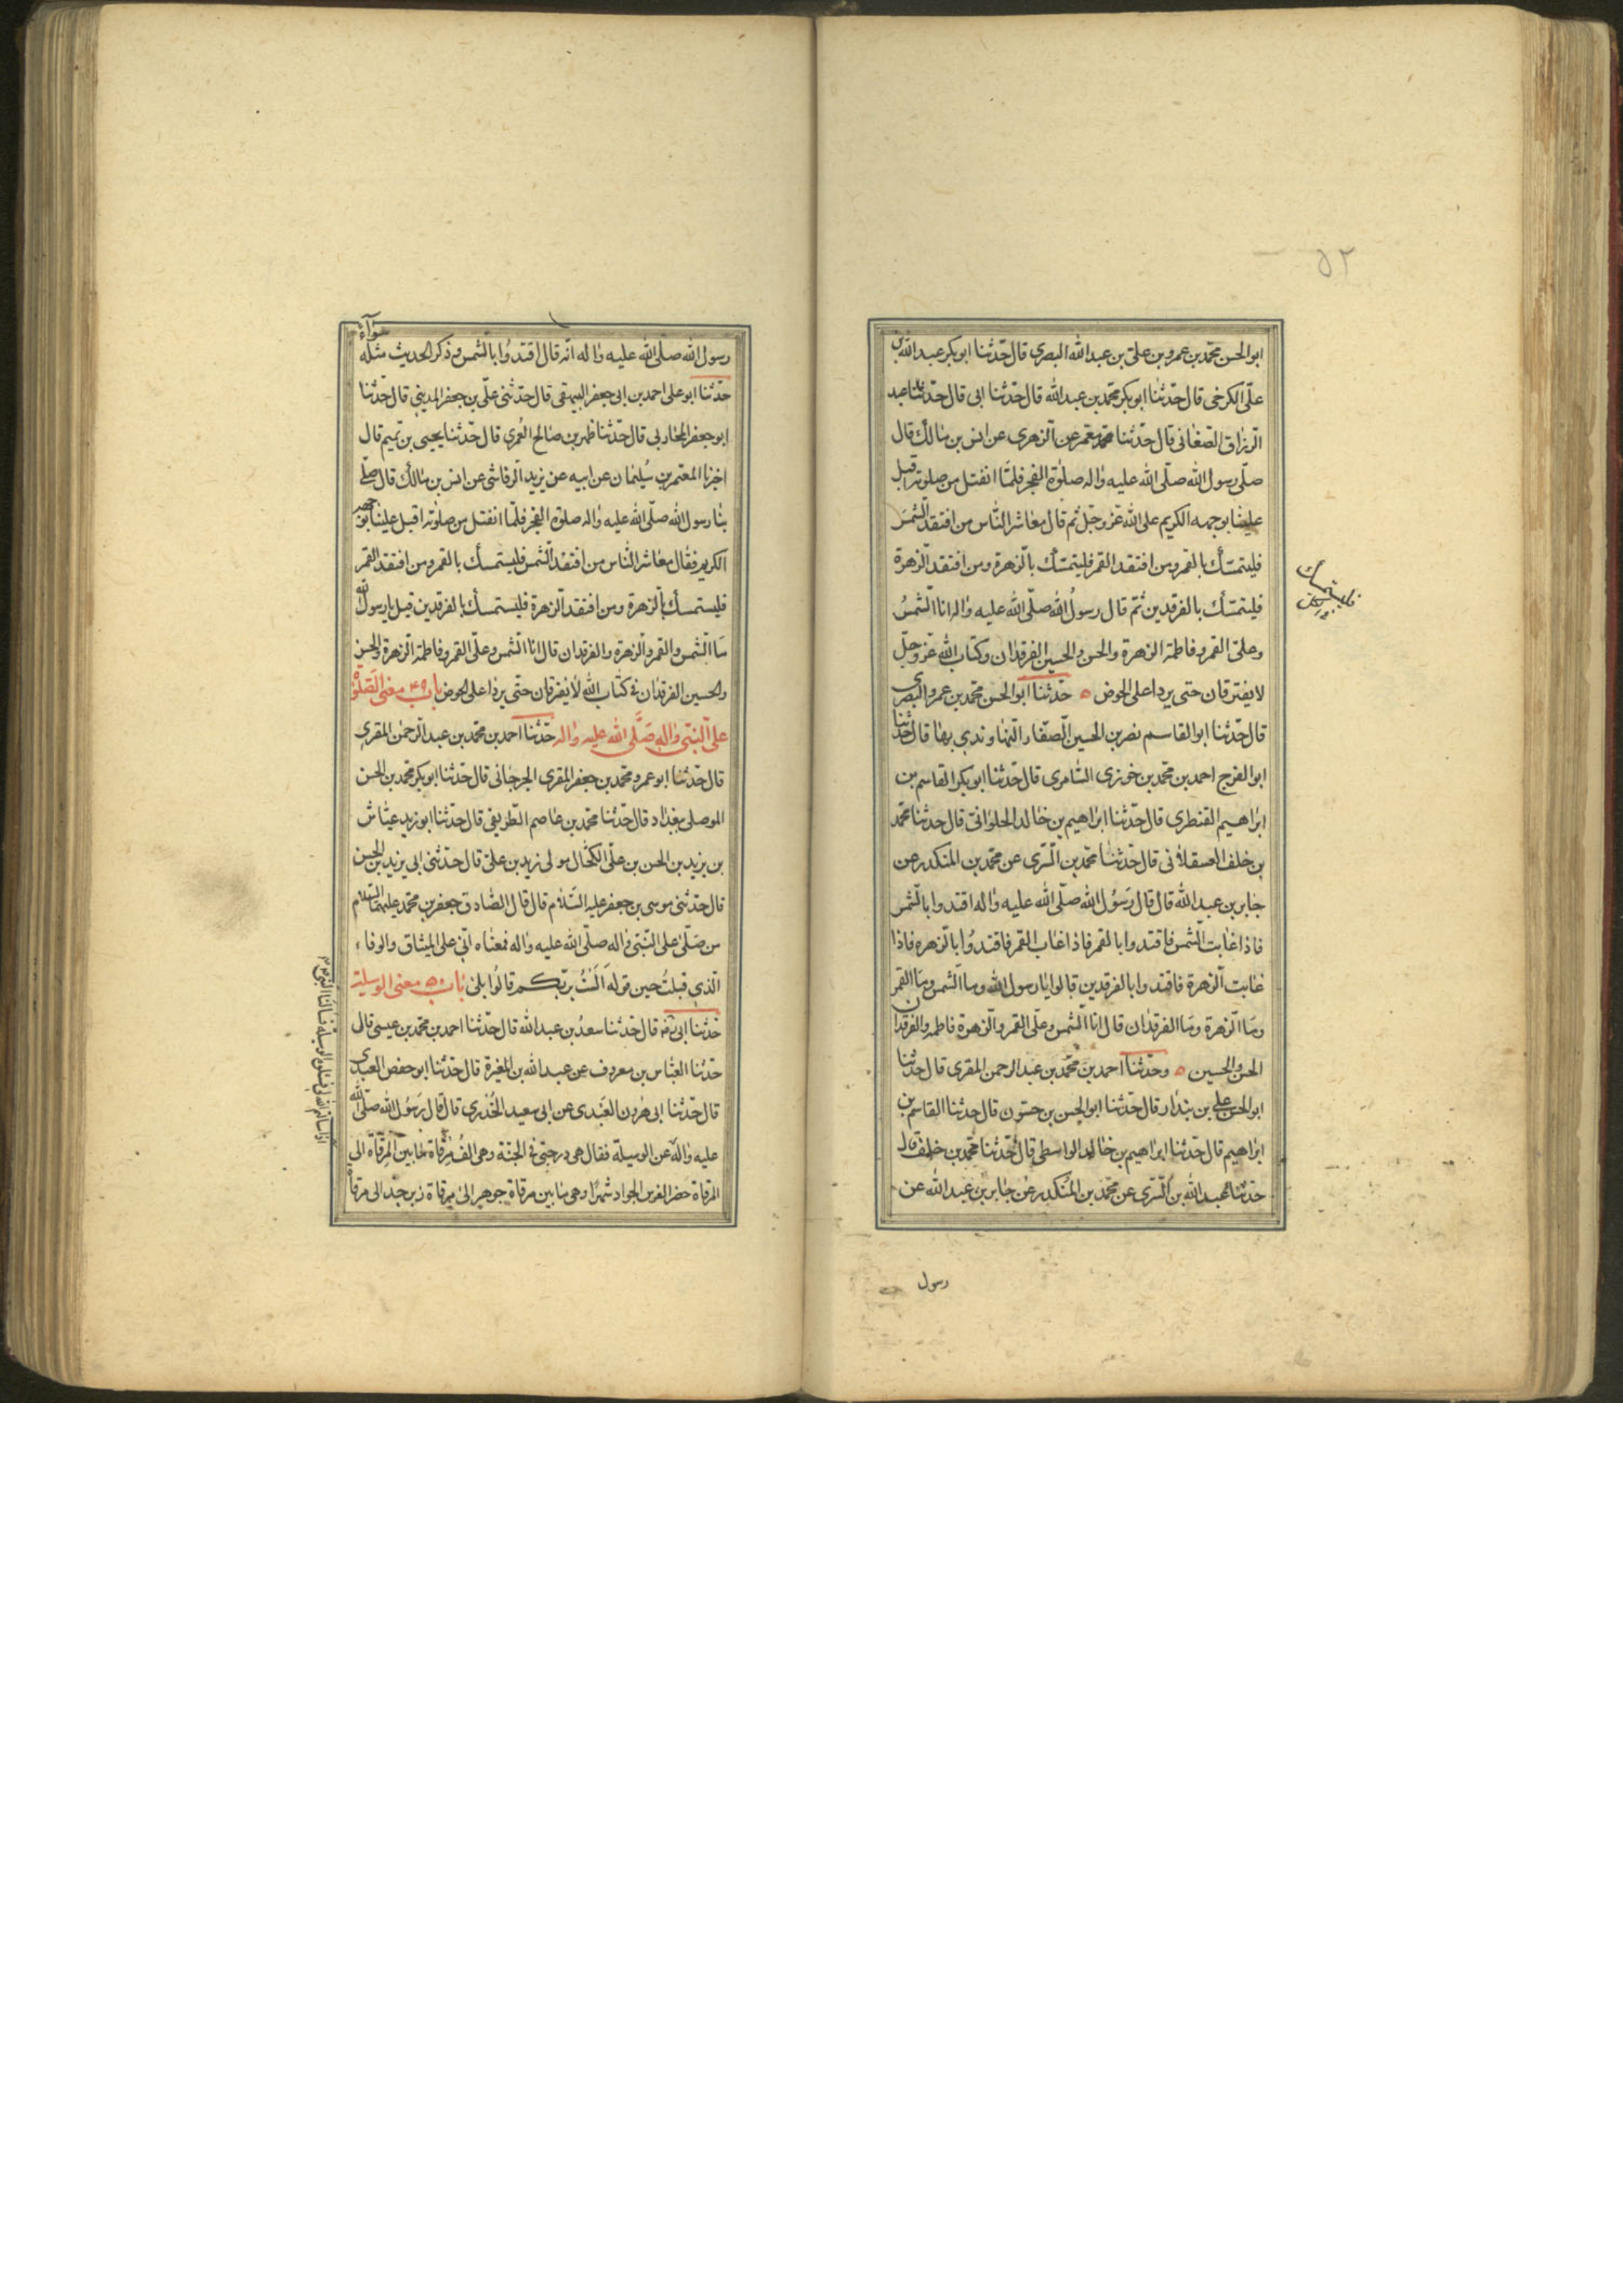 ٥٢
ابو الحسن محمد بن عمرو بن علی بن عبد الله البصری قال حدثنا ابو بکر عبد الله بن
علی الکرخی قال حدثنا ابو بکر محمد بن عبد الله قال حدثنا ابی قال حدثنا عبد
الرزاق الصغانی قال حدثنا معمر عن الزهری عن انس بن مالک قال
صلی رسول الله صلی الله علیه واله صلوة الفجر فلما انفتل من صلوته اقبل
علینا بوجهه الکریم علی الله عز وجل ثم قال معاشر الناس من افتقد الشمس
فلیتمسک بالقمر ومن افتقد القمر فلیتمسک بالزهرة ومن افتقد الزهرة
فلیتمسک بالفرقدین ثم قال رسول الله صلی الله علیه واله انا الشمس
وعلی القمر وفاطمة الزهرة والحسن والحسین الفرقدان وکتاب الله عز وجل
لا یفترقان حتی یردا علی الحوض ٥ حدثنا ابو الحسن محمد بن عمرو البصری
قال حدثنا ابو القاسم نصر بن الحسین الصفار النهاوندی بها قال حدثنا
ابو الفرج احمد بن محمد بن خوزی السامری قال حدثنا ابو بکر القاسم بن
ابراهیم القنطری قال حدثنا ابراهیم بن خالد الحلوانی قال حدثنا محمد
بن خلف العسقلانی قال حدثنا محمد بن السری عن محمد بن المنکدر عن
جابر بن عبد الله قال قال رسول الله صلی الله علیه واله اقتدوا بالشمس
فاذا غابت الشمس فاقتدوا بالقمر فاذا غاب القمر فاقتدوا بالزهره فاذا
غابت الزهرة فاقتدوا بالفرقدین قالوا یا رسول الله وما الشمس وما القمر
وما الزهرة وما الفرقدان قال انا الشمس وعلی القمر والزهرة فاطمه والفرقدان
الحسن والحسین ٥ وحدثنا احمد بن محمد بن عبد الرحمن المقری قال حدثنا
ابو الحسن علی بن بندار قال حدثنا ابو الحسن بن حسنون قال حدثنا القاسم بن
ابراهیم قال حدثنا ابراهیم بن خالد الواسطی قال حدثنا محمد بن خلف قال
حدثنا عبد الله بن السری عن محمد بن المنکدر عن جابر بن عبد الله عن
فلیستمسک
رسول
سواء
رسول الله صلی الله علیه واله انه قال اقتدوا بالشمس وذکر الحدیث مثله
حدثنا ابو علی احمد بن ابی جعفر البیهقی قال حدثنی علی بن جعفر المدینی قال حدثنا
ابو جعفر المحاربی قال حدثنا ظهر بن صالح العمری قال حدثنا یحیی بن تمیم قال
اخبرنا المعتمر بن سلیمان عن ابیه عن یزید الرقاشی عن انس بن مالک قال صلی
بنا رسول الله صلی الله علیه واله صلوة الفجر فلما انفتل من صلوته اقبل علینا بوجهه
الکریم فقال معاشر الناس من افتقد الشمس فلیستمسک بالقمر ومن افتقد القمر
فلیستمسک بالزهرة ومن افتقد الزهرة فلیستمسک بالفرقدین قیل یا رسول الله
ما الشمس والقمر والزهرة والفرقدان قال انا الشمس وعلی القمر وفاطمة الزهرة والحسن
والحسین الفرقدان فی کتاب الله لا یفترقان حتی یردا علی الحوض باب ۴۹ معنی الصلوة
علی النبی واله صلی الله علیه واله حدثنا احمد بن محمد بن عبد الرحمن المقری
قال حدثنا ابو عمرو محمد بن جعفر المقری الجرجانی قال حدثنا ابو بکر محمد بن الحسن
الموصلی ببغداد قال حدثنا محمد بن عاصم الطریفی قال حدثنا ابو زید عیاش
بن یزید بن الحسن بن علی الکحال مولی زید بن علی قال حدثنی ابی یزید بن الحسن
قال حدثنی موسی بن جعفر علیه السلام قال قال الصادق جعفر بن محمد علیهما السلام
من صلی علی النبی واله صلی الله علیه واله فمعناه انی علی المیثاق والوفاء
الذی قبلت حین قوله الست بربکم قالوا بلی باب ٥٠ معنی الوسیلة
حدثنا ابی ره قال حدثنا سعد بن عبد الله قال حدثنا احمد بن محمد بن عیسی قال
حدثنا العباس بن معروف عن عبد الله بن المغیرة قال حدثنا ابو حفص العبدی
قال حدثنا ابی هرون العبدی عن ابی سعید الخدری قال قال رسول الله صلی الله
علیه واله عن الوسیلة فقال هی درجتی فی الجنة وهی الف مرقاة ما بین المرقاة الی
المرقاة حضر الفرس الجواد شهرا وهی ما بین مرقاة جوهر الی مرقاة زبرجد الی مرقاة
اذا سالتم الله لی فسلوه الوسیلة فسالنا النبی